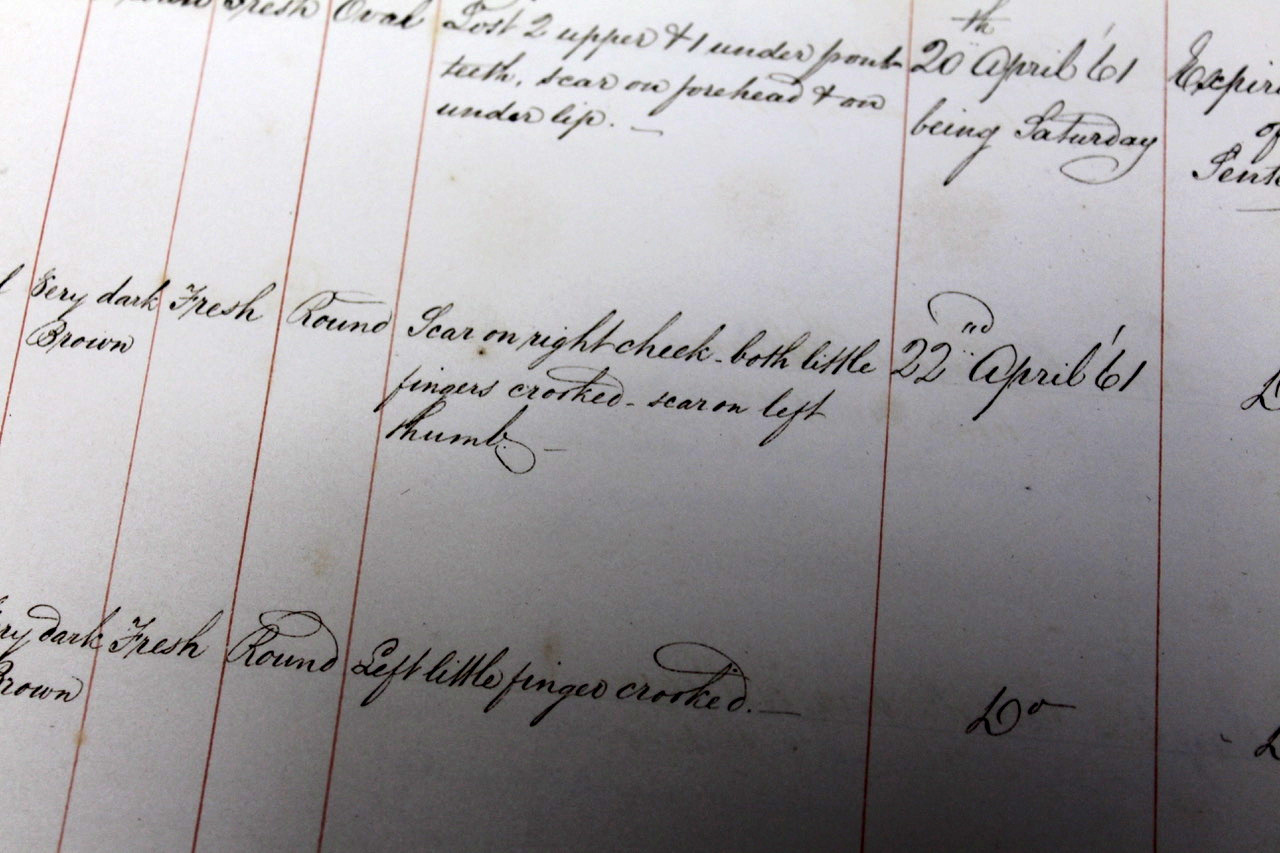 Fresh Oval Lost 2 upper & 1 under front 20th April '61
teeth, scar on forehead & on being Saturday of
under lip. —
Very dark Fresh Round Scar on right cheek - both little 22nd April '61
Brown fingers crooked - scar on left
thumb. —
dark Fresh Round Left little finger crooked. — Do
Brown